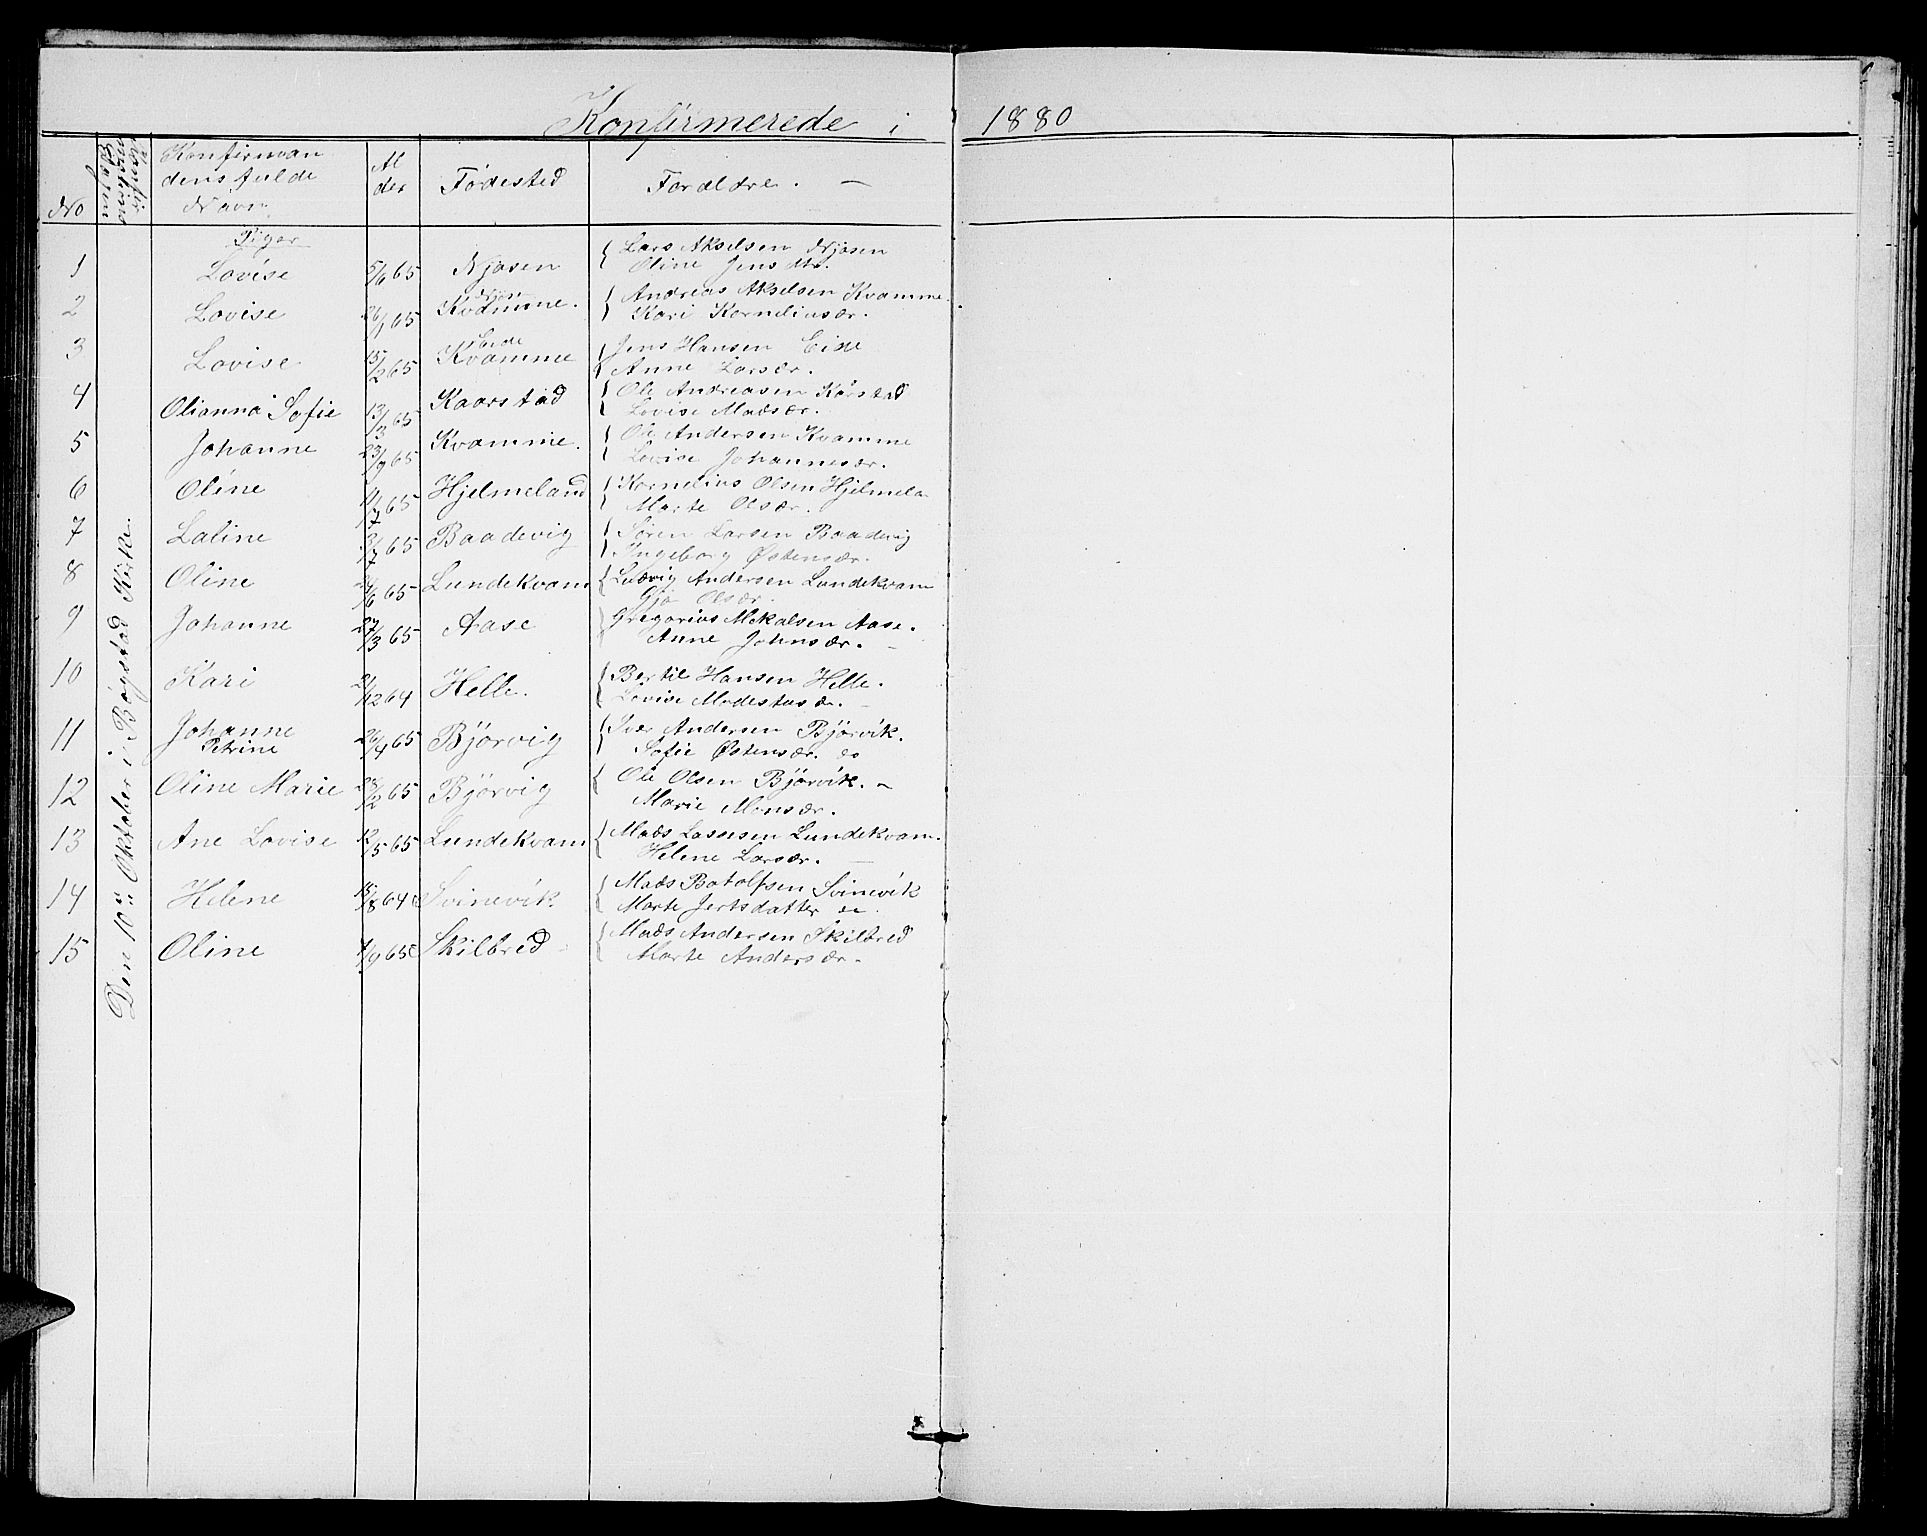 Konfirmerede i 1880
No
Konfirman
densfulde
Navn
Al
der
Fødested
Foraldre. —
Den 10de Oktober i Bøgstad Kirke.
Piger
1 Lovise 5/6 65 Njøsen { Lars Akselsen Njøsen
Oline Jensdtr.
2 Lovise 26/1 65 Kvamme. { Andreas Akselsen Kvamme.
Kari Korneliusdr.
3 Lovise 15/2 65 Kvamme { Jens Hansen Eide
Anne Larsdr.
4 Olianna Sofie 13/3 65 Kaarstad { Ole Andreasen Kårstad
Lovise Madsdr.
5 Johanne 23/9 65 Kvamme. { Ole Andersen Kvamme
Lovise Johannesdr.
6 Oline 11/7 65 Hjelmeland { Kornelius Olsen Hjelmela
Marte Olsdr.
7 Laline 3/7 65 Baadevig { Søren Larsen Baadevig
Ingeborg Østensdr.
8 Oline /6 65 Lundekvam { Ludvig Andersen Lundekvam
Olsdr.
9 Johanne 27/3 65 Aase { Gregorius Mikalsen Aase.
Anne Johnsdr. —
10 Kari 21/12 64 Helle. { Bertil Hansen Helle.
Lovise Modestusdr. —
11 Johanne
Petrine 26/4 65 Bjørvig { Iver Andersen Bjørvik.
Sofie Østensdr.
12 Oline Marie 28/2 65 Bjørvig { Ole Olsen Bjørvik. —
Marie Monsdr.
13 Ane Lovise 12/5 65 Lundekvam { Mads Lassesen Lundekvam.
Helene Larsdr. —
14 Helene 18/8 64 Svinevik { Mads Botolfsen Svinevik
Marte Jertsdatter
15 Oline /9 65 Skilbred { Mads Andersen Skilbred
Marte Andersdr.